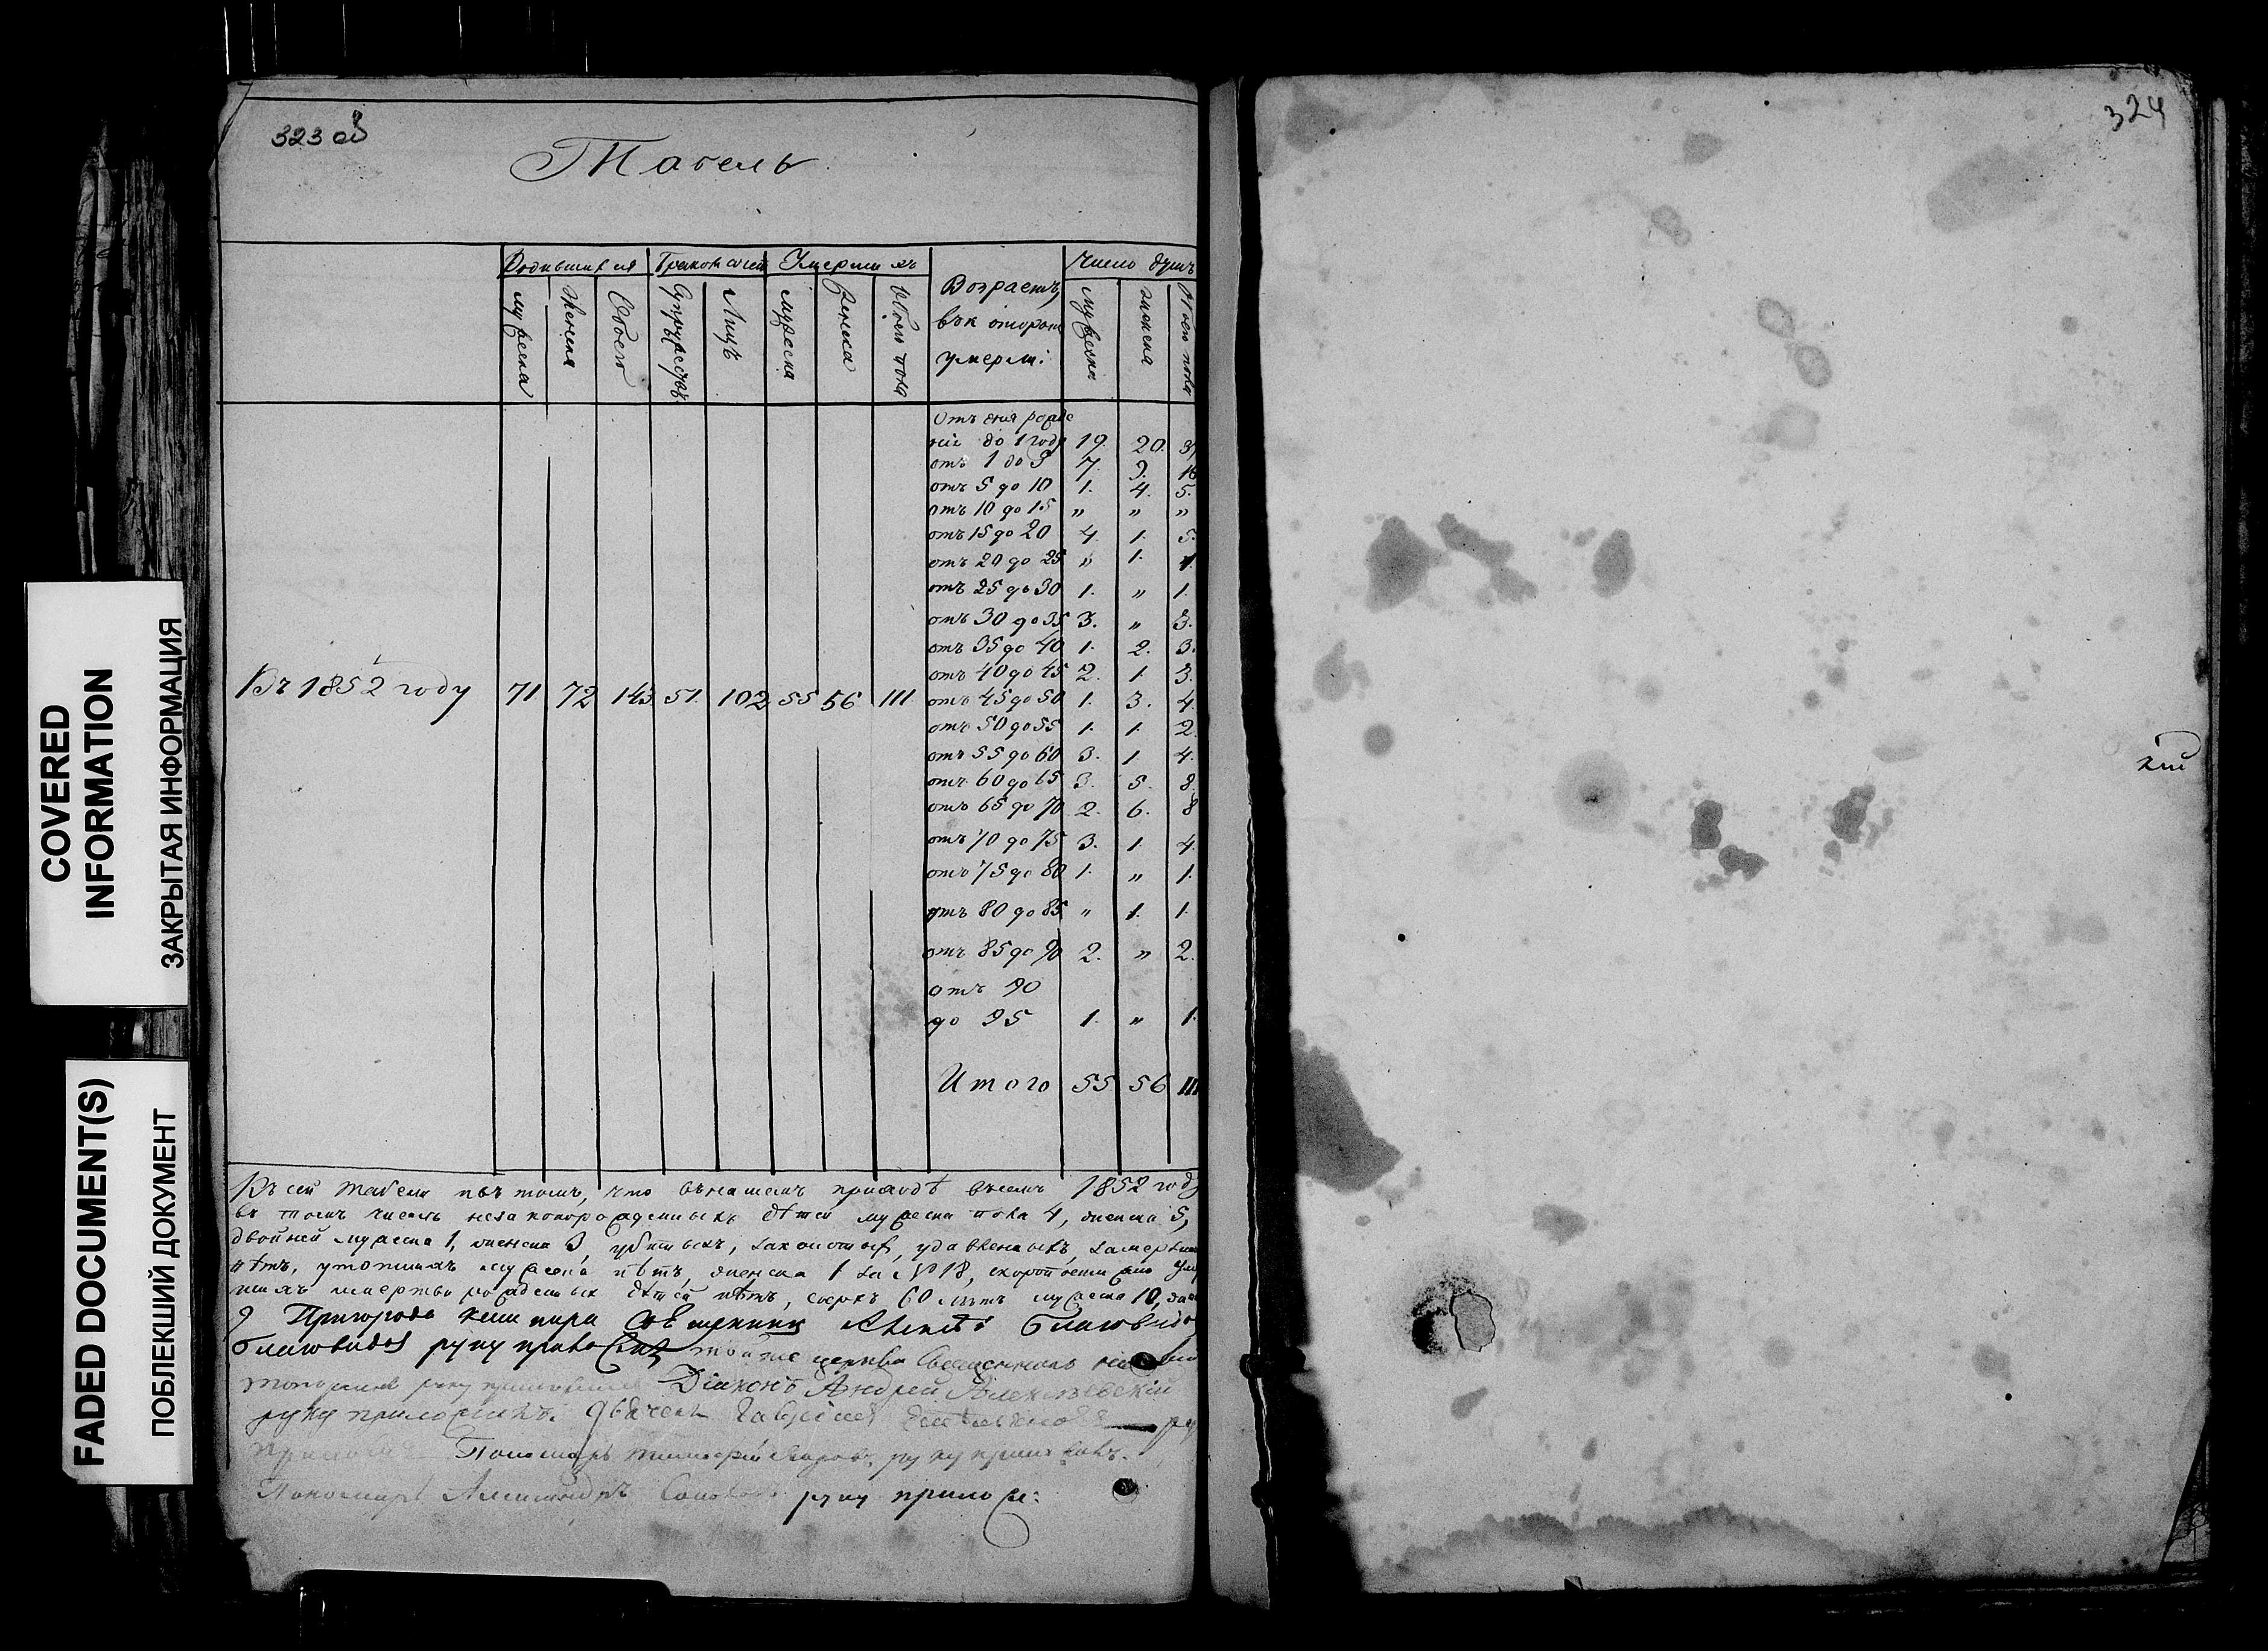 323 об
Табель
Родившихся Браком сочет Умерших Возрастъ, Число душъ
вкоторомъ
умерли:
мужеска Женска Обоего Супружествъ Лицъ мужеска женска обоего пола мужеска женска Обоего пола
Отъ дня рожде
нія до 1 году 19. 20. 39
отъ 1 до 5 7. 9. 16
отъ 5 до 10 1. 4. 5.
отъ 10 до 15 „ „ „
отъ 15 до 20 4. 1. 5.
отъ 20 до 25 „ 1. 1.
отъ 25 до 30 1. „ 1.
отъ 30 до 35 3. „ 3.
отъ 35 до 40 1. 2. 3.
отъ 40 до 45 2. 1. 3.
Въ 1852 году 71 72 143 51. 102 55 56 111 отъ 45 до 50 1. 3. 4.
отъ 50 до 55 1. 1. 2.
отъ 55 до 60 3. 1. 4.
отъ 60 до 65 3. 5. 8.
отъ 65 до 70 2. 6. 8
отъ 70 до 75 3. 1. 4.
отъ 75 до 80 1. „ 1.
отъ 80 до 85 „ 1. 1.
отъ 85 до 90 2. „ 2.
отъ 90
до 95 1. „ 1.
Итого 55 56 111
Къ сей табели въ томъ, что внашемъ приходѣ всемъ 1852 году
въ томъ числѣ незаконорожденныхъ дѣтей мужеска пола 4, женска 5,
двойней мужеска 1, женска 3, убитыхъ, удавленыхъ,
нѣтъ, утопшихъ мужеска нѣтъ, женска 1 за №18, скоропостижно
шихъ мертворожденныхъ дѣтей нѣтъ, сверхъ 60 лѣтъ мужеска 10,
9 Пригорода Священникъ Алексѣй Благовидов
руку приложилъ тойже церкви Священникъ
руку приложилъ Діаконъ Андрей Алексѣевскій
руку приложилъ. Дьячекъ Гавріилъ ру
Пономарь Тимофей руку приложилъ.
Пономарь Александръ руку приложи:
324
кій
COVERED
INFORMATION
ЗАКРЫТАЯ ИНФОРМАЦИЯ
FADED DOCUMENT(S)
ПОБЛЕКШИЙ ДОКУМЕНТ